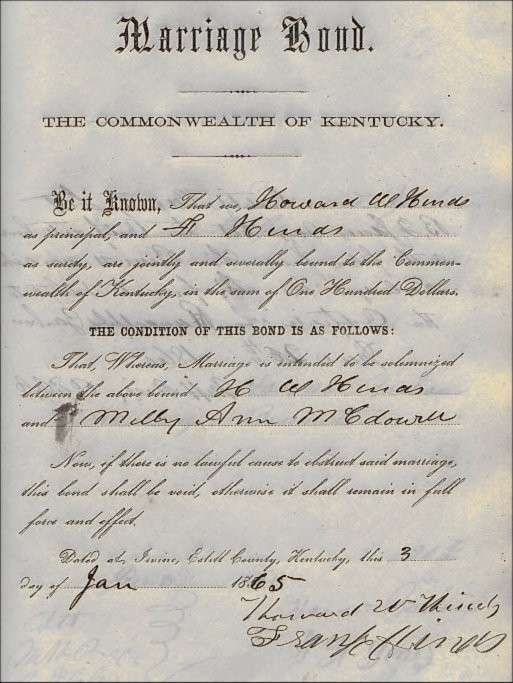 Marriage Bond.
THE COMMONWEALTH OF KENTUCKY.
Be it Known, That we, Howard W Hinds
as principal, and Hinds
as surety, are jointly and severally bound to the Common-
wealth of Kentucky, in the sum of One Hundred Dollars.
THE CONDITION OF THIS BOND IS AS FOLLOWS:
That, Whereas, Marriage is intended to be solemnized
between the above bound H W Hinds
and Milly Ann McDowell
Now, if there is no lawful cause to obstruct said marriage,
this bond shall be void, otherwise it shall remain in full
force and effect.
Dated at Irvine, Estill County, Kentucky, this 3
day of Jan 1865
Howard W Hinds
Frank Hinds